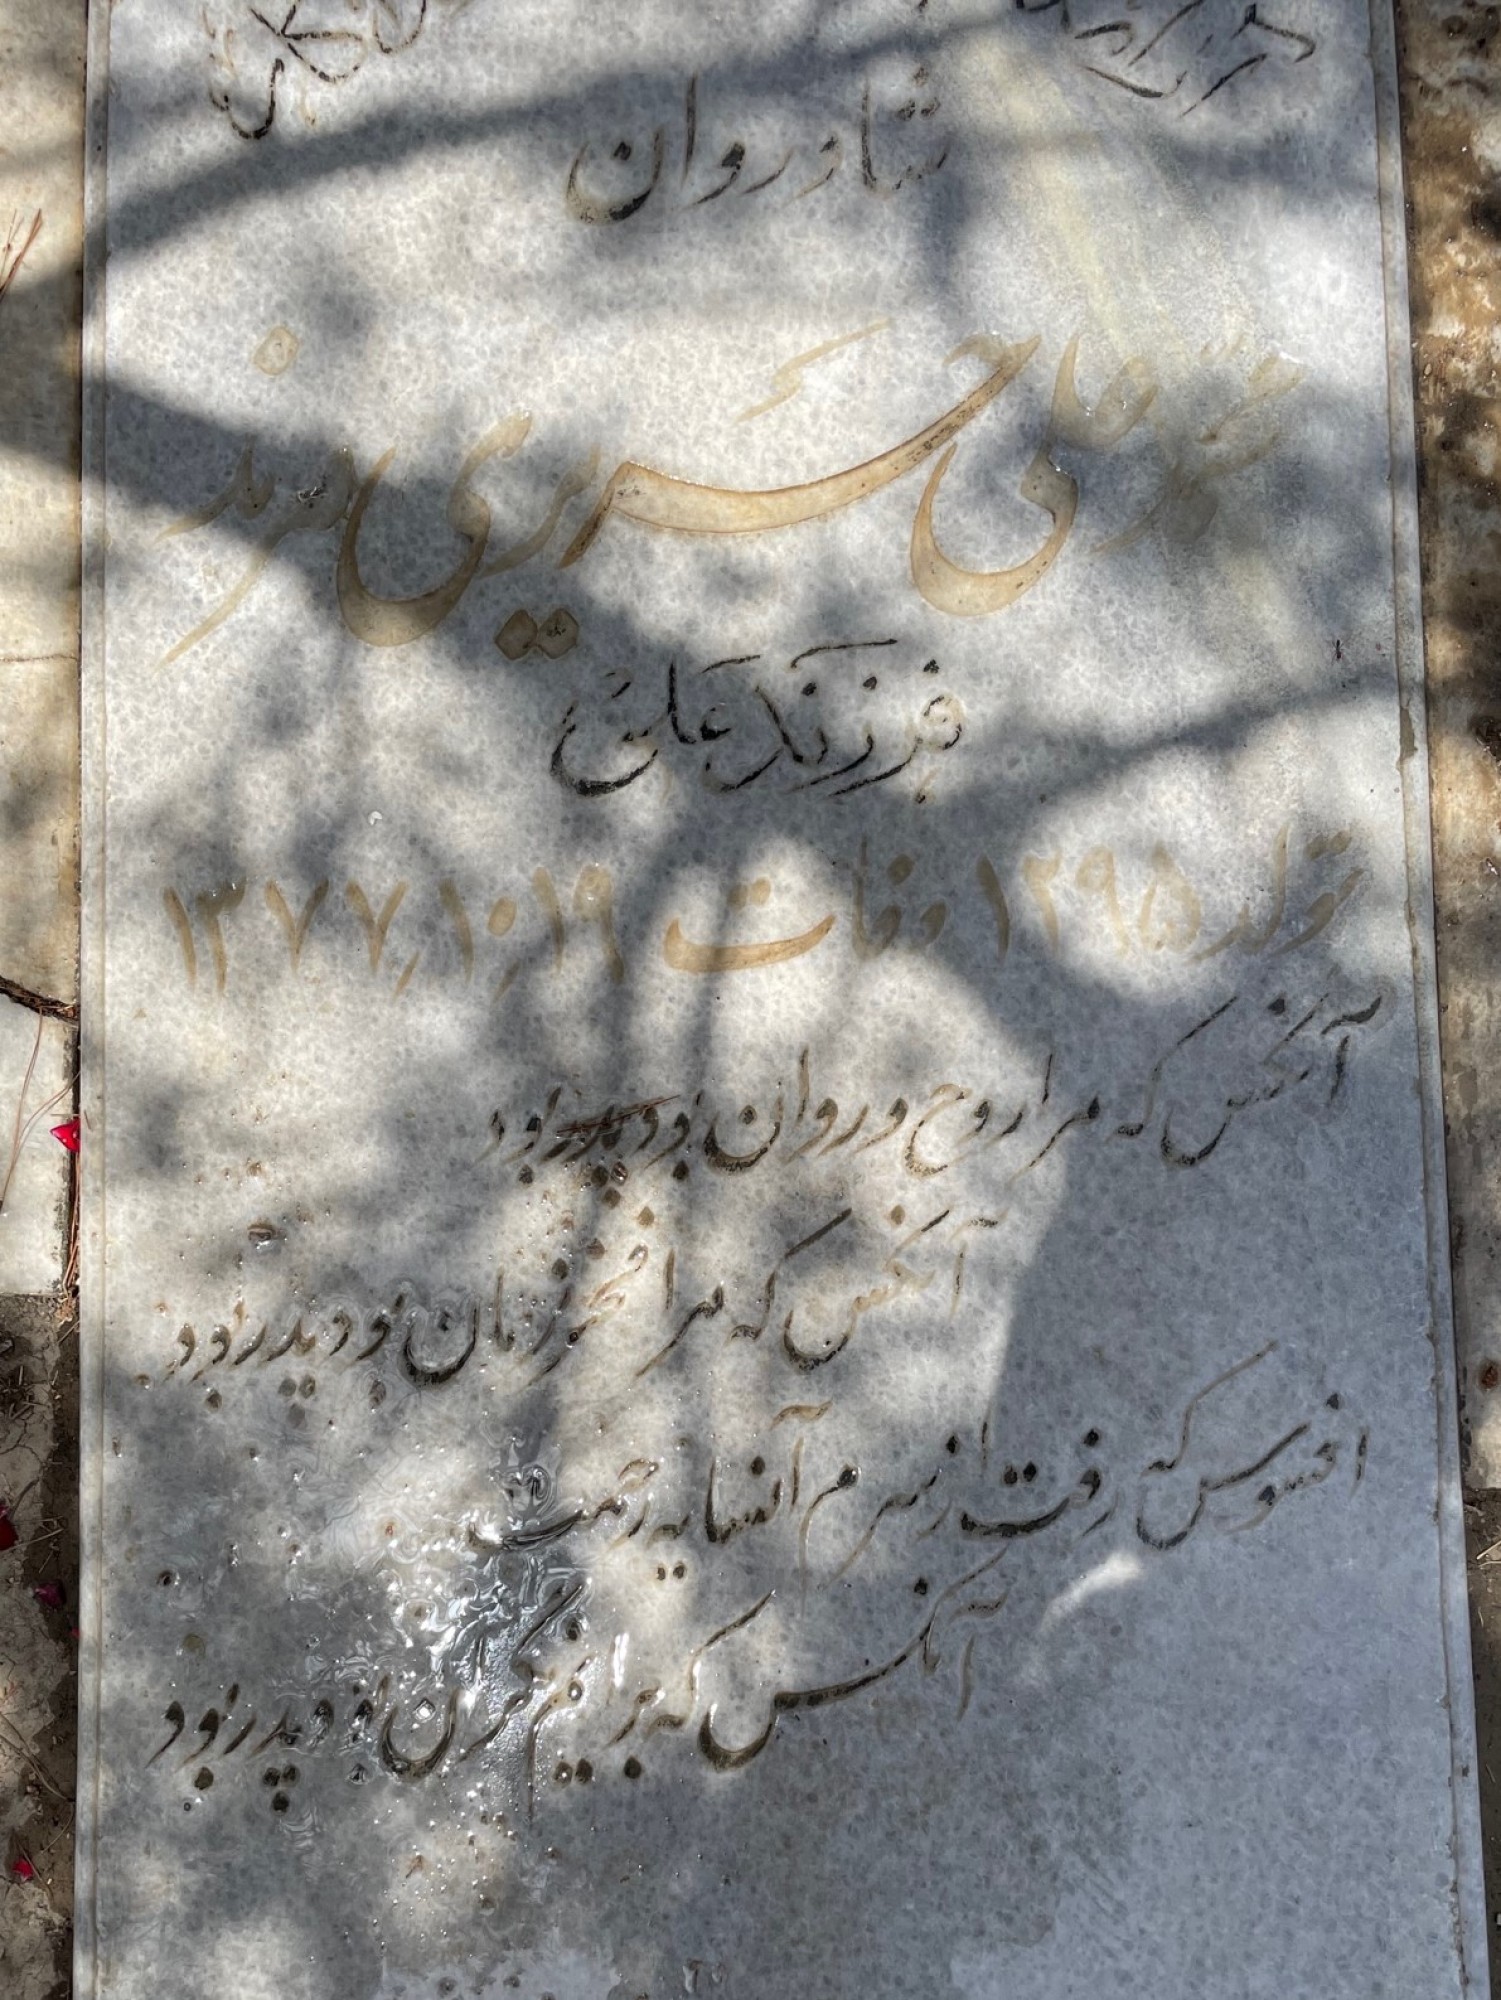 شادروان
علی حریری مرند
فرزند علی
تولد ۱۲۹۵ وفات ۱۳۷۷٫۱۰٫۱۹
آنکس که مرا روح و روان بود پدر بود
آنکس که مرا فخر زمان بود پدر بود
افسوس که رفت از سرم آنسایه رحمت
آنکس که برایم نگران بود پدر بود